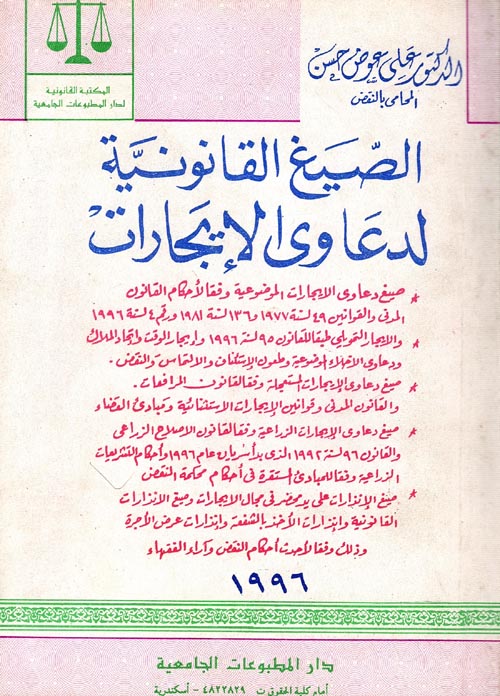 المكتبة القانونية
لدار المطبوعات الجامعية
الدكتور على عوض حسن
المحامى بالنقض
الصّيغ القانونيّة
لدعاوى الإيجارات
* صيغ دعاوى الايجارات الموضوعية وفقا لأحكام القانون
المدنى والقوانين ٤٩ لسنة ١٩٧٧ و١٣٦ لسنة ١٩٨١ ورقم ٤ لسنة ١٩٩٦
* والايجار التمويلى طبقا للقانون ٩٥ لسنة ١٩٩٦ وإيجار الوقت واتحاد الملاك
ودعاوى الاخلاء الموضوعية وطعون الإستئناف والالتماس والنقض .
* صيغ دعاوى الإيجارات المستعجلة وفقا لقانون المرافعات .
والقانون المدنى وقوانين الإيجارات الاستثنائية ومبادئ القضاء
* صيغ دعاوى الإيجارات الزراعية وفقا لقانون الاصلاح الزراعى
والقانون ٩٦ لسنة ١٩٩٢ الذى بدأ سريان عام ١٩٩٦ وأحكام التشريعات
الزراعية وفقا للمبادئ المستقرة فى أحكام محكمة النقض
* صيغ الإنذارات على يد محضر فى مجال الايجارات وصيغ الانذارات
القانونية وإنذارات الأخذ بالشفعة وإنذارات عرض الأجرة
وذلك وفقا لأحدث أحكام النقض وآراء الفقهاء
١٩٩٦
دار المطبوعات الجامعية
أمام كلية الحقوق ت ٤٨٢٢٨٢٩ - أسكندرية